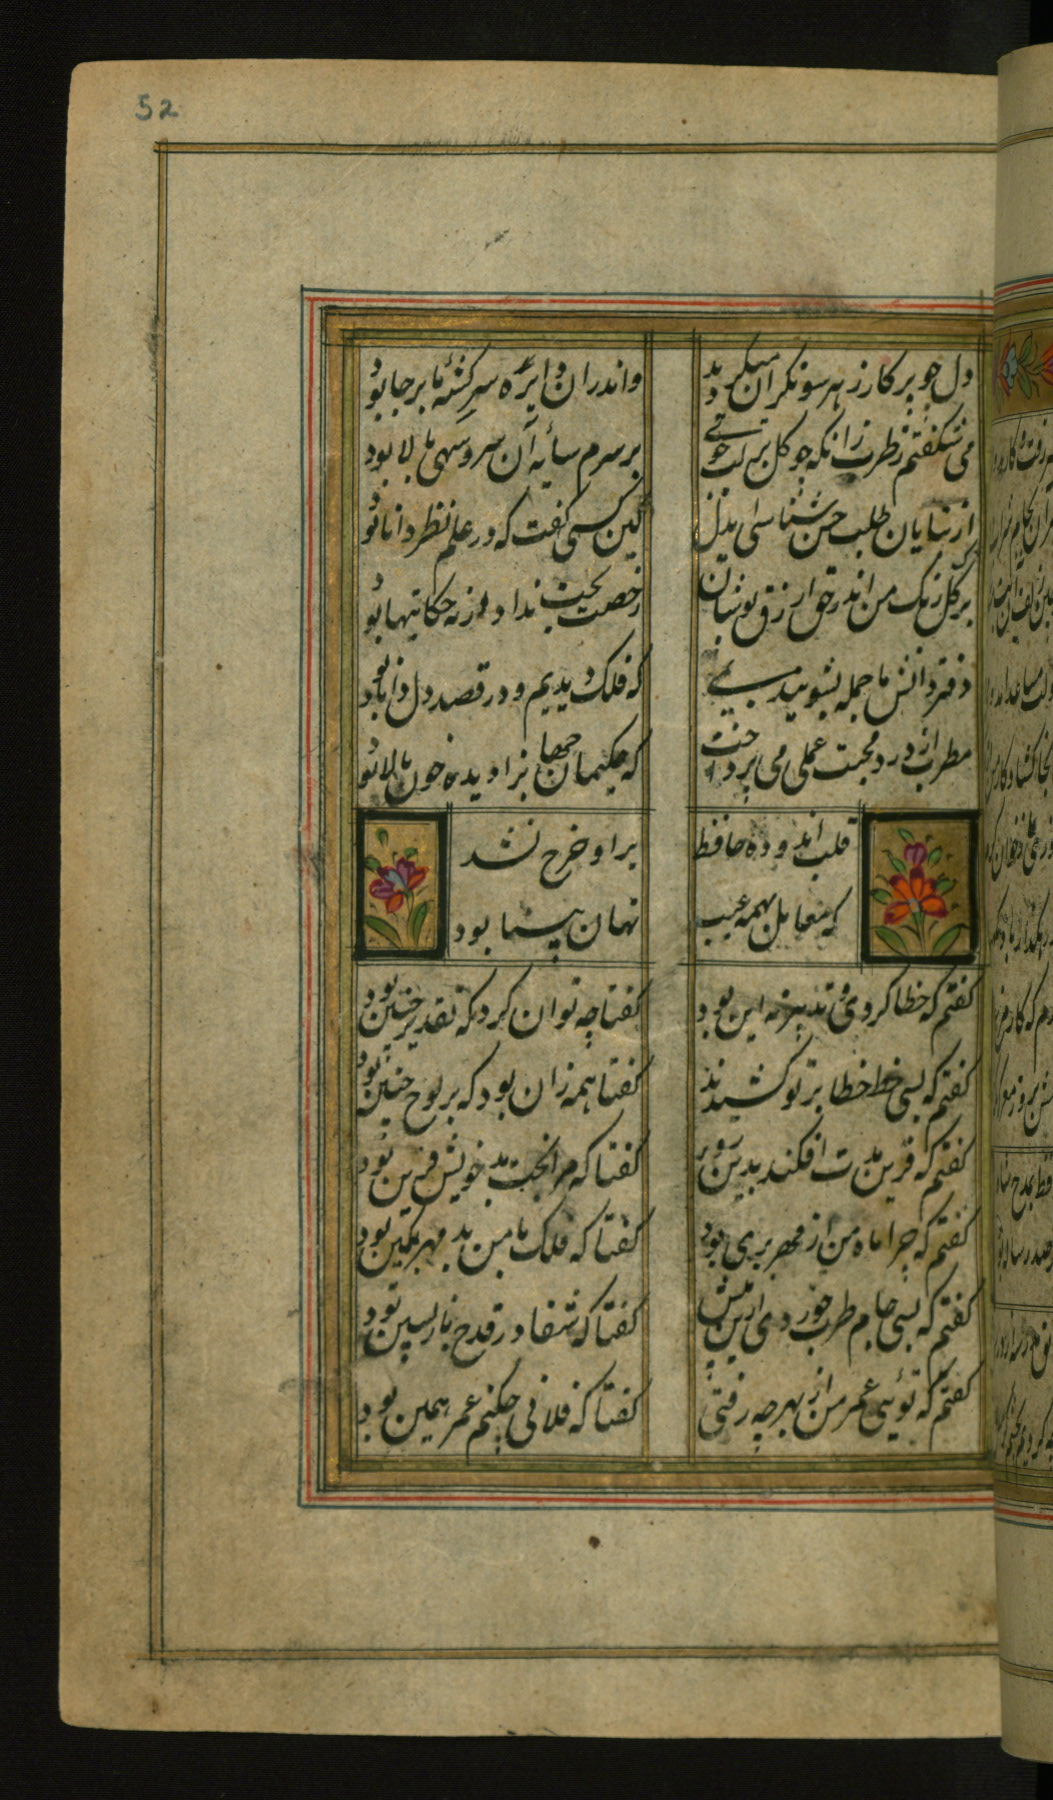 52
دل چو پرکار ز هر سو نکران میکردید
واندران دایره سرکشته پا برجا بود
می شکفتم ز طرب زانکه چو کل بر لب جوی
بر سرم سایه آن سرو سهی بالا بود
از بتایان طلب حسن شناسی ایدل
کین کسی کفت که در علم نظر دانا بود
پیر کلرنک من اندر حق ازرق پوشان
رخصت خبث نداد ارنه حکایتها بود
دفتر دانش ما جمله بشوئید بمی
که فلک دیدیم و در قصد دل دانا بود
مطرب از درد محبت عملی می پرداخت
که حکیمان جهانرا دیده خون پالا بود
قلب اندوده حافظ
بر او خرج نشد
که معامل بهمه عیب
نهان بینا بود
کفتم که خطا کردی و تدبیر نه این بود
کفتا چه توان کرد که تقدیر چنین بود
کفتم که بسی خط خطا بر تو کشیدند
کفتا همه زان بود که بر لوح جبین بود
کفتم که قرین بدت افکند بدین روز
کفتا که مرا بخت بد خویش قرین بود
کفتم که چرا ماه من از مهر بری بود
کفتا که فلک با من بد مهر بکین بود
کفتم که بسی جام طرب خوردی ازین پیش
کفتا که شفا در قدح باز پسین بود
کفتم که توئی عمر من از بهر چه رفتی
کفتا که فلانی چکنم عمر همین بود